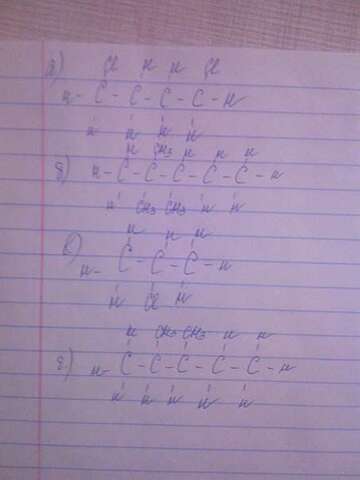 а) Cl H H Cl
H - C - C - C - C - H
H H H H
б) H CH3 H H H
H - C - C - C - C - C - H
H CH3 CH3 H H
в) H H H
H - C - C - C - H
H Cl H
г) H CH3 CH3 H H
H - C - C - C - C - C - H
H H H H H